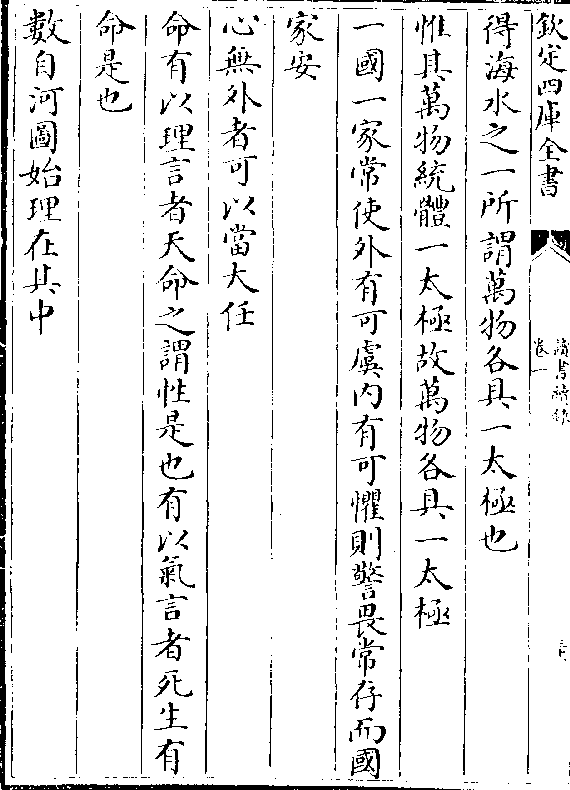 欽定四庫全書
讀書續錄
卷一
得海水之一所謂萬物各具一太極也
惟其萬物統體一太極故萬物各具一太極
一國一家常使外有可虞内有可懼則警畏常存而國
家安
心無外者可以當大任
命有以理言者天命之謂性是也有以氣言者死生有
命是也
數自河圖始理在其中